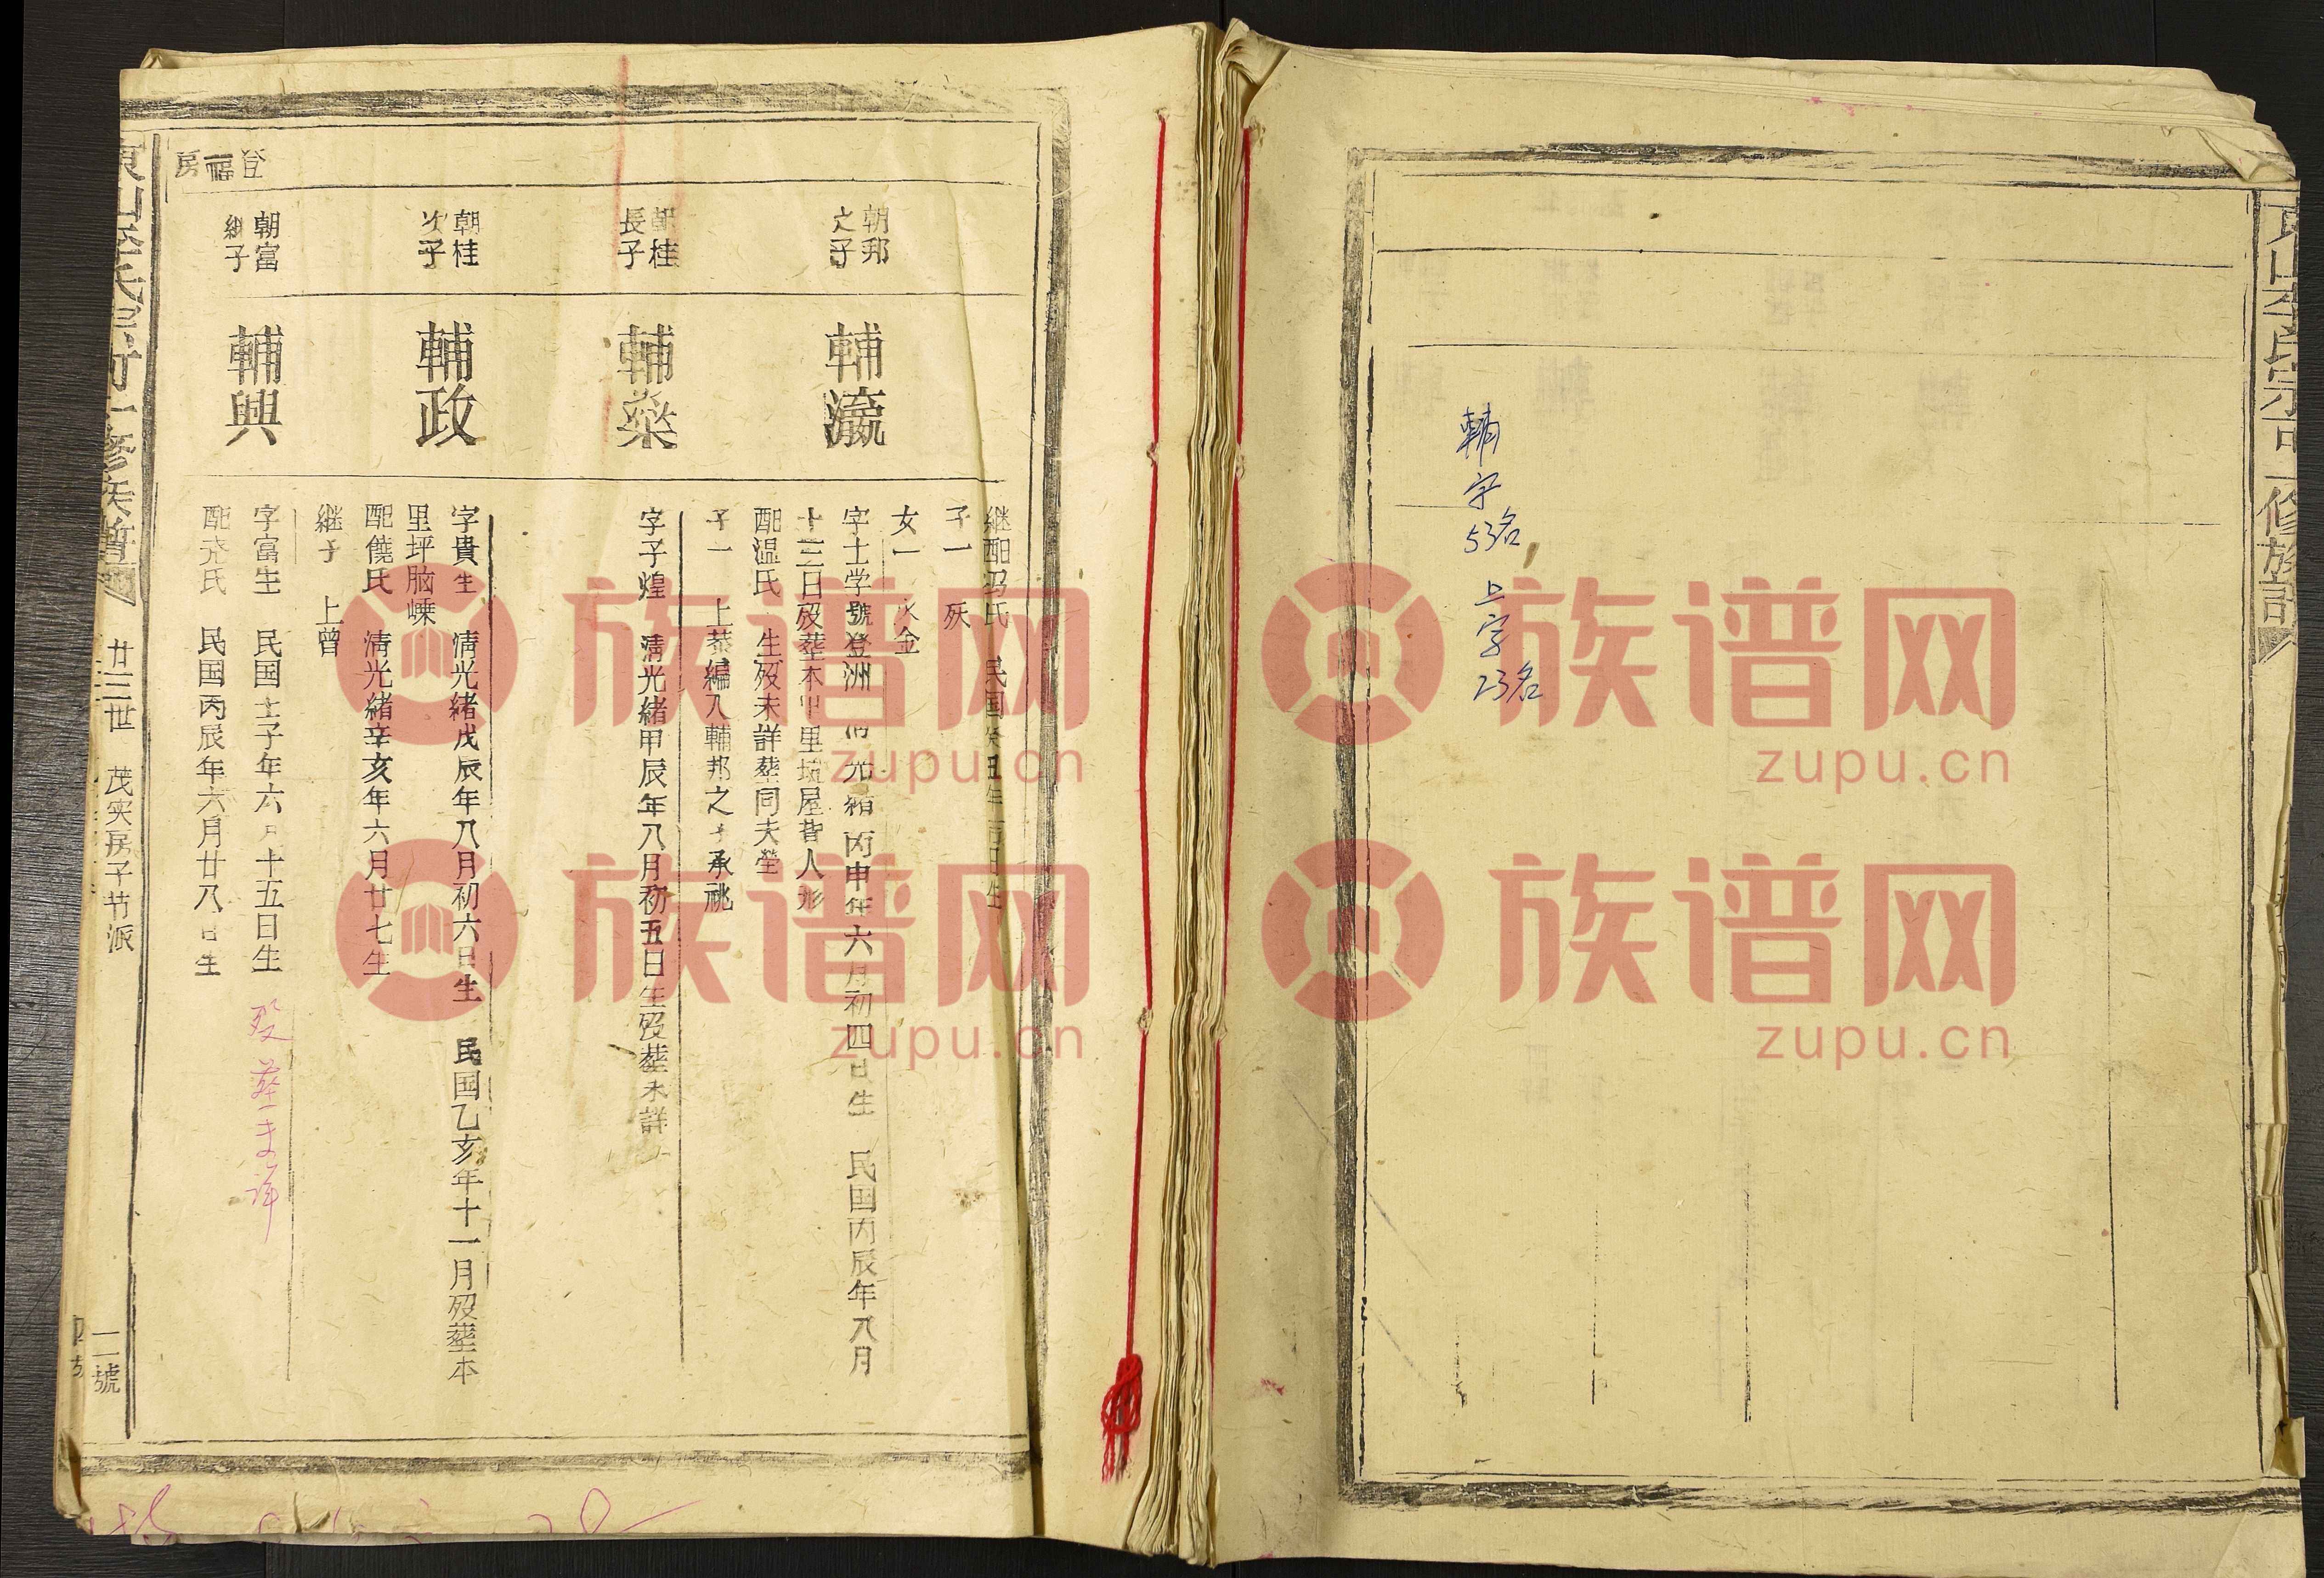 輔字
53名
上字
23名
登福房
朝邦
之子
輔瀛
朝桂
長子
輔燊
朝桂
次子
輔政
朝富
継子
輔興
継配冯氏 民国癸丑年
子一 殀
女一 火金
字士学號登洲 清光緒丙申年六月初四日生 民国丙辰年八月
十三日殁塟本甲里坑屋背人形
配温氏 生殁未詳塟同夫塋
子一 上棻編入輔邦之子承祧
字子煌 清光緒甲辰年八月初五日生殁塟未詳
字貴生 清光緒戊辰年八月初六日生 民国乙亥年十一月殁塟本
里坪脑嵊
配饒氏 清光緒辛亥年六月廿七生
継子 上曾
字富生 民国壬子年六月十五日生 殁葬未详
民国丙辰年六月廿八日生
廿三世 茂实房子节派
二號
族谱网
zupu.cn
族谱网
zupu.cn
族谱网
zupu.cn
族谱网
zupu.cn